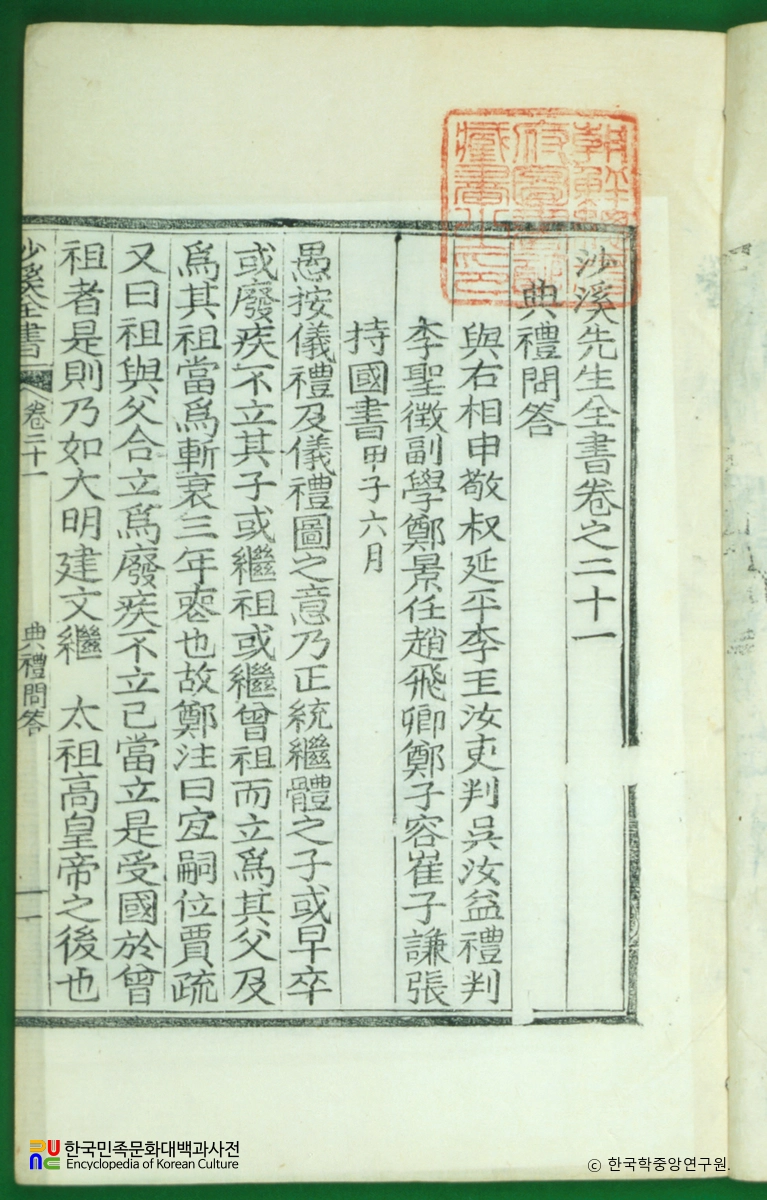 沙溪先生全書卷之二十一
典禮問答
與右相申敬叔延平李玉汝吏判吳汝益禮判
李聖徵副學鄭景任趙飛卿鄭子容崔子謙張
持國書甲子六月
愚按儀禮及儀禮圖之意乃正統繼體之子或早卒
或廢疾不立其子或繼祖或繼曾祖而立爲其父及
爲其祖當爲斬衰三年喪也故鄭注曰宜嗣位賈疏
又曰祖與父合立爲廢疾不立己當立是受國於曾
祖者是則乃如大明建文繼 太祖高皇帝之後也
沙溪全書 卷二十一 典禮問答 一
朝鮮總督府圖書館藏書之印
한국민족문화대백과사전
Encyclopedia of Korean Culture
© 한국학중앙연구원.